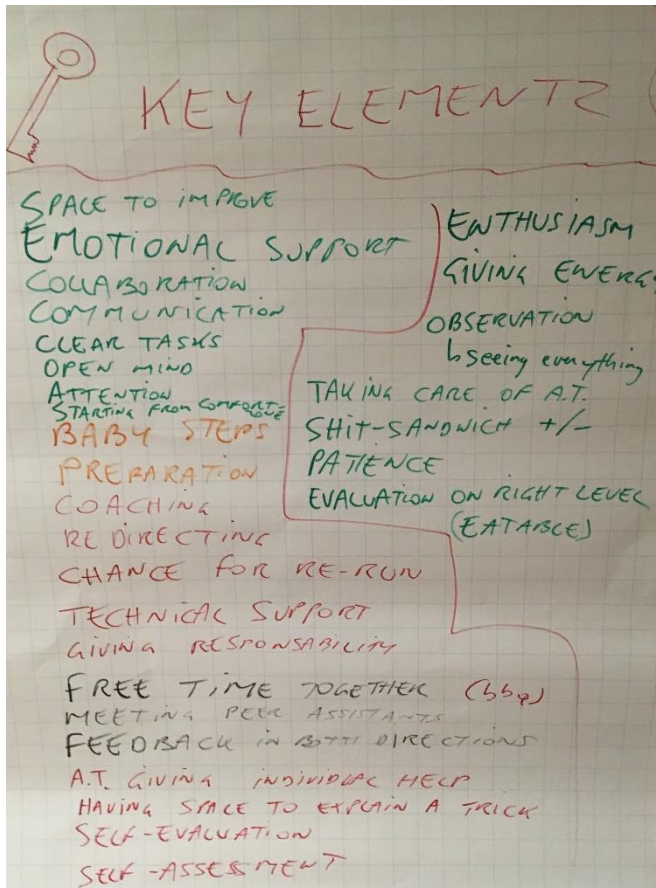 KEY ELEMENTS
SPACE TO IMPROVE
EMOTIONAL SUPPORT
COLLABORATION
COMMUNICATION
CLEAR TASKS
OPEN MIND
ATTENTION
STARTING FROM COMFORT-ZONE
BABY STEPS
PREPARATION
COACHING
REDIRECTING
CHANCE FOR RE-RUN
TECHNICAL SUPPORT
GIVING RESPONSABILITY
FREE TIME TOGETHER (bbq)
MEETING PEER ASSISTANTS
FEEDBACK IN BOTH DIRECTIONS
A.T. GIVING INDIVIDUAL HELP
HAVING SPACE TO EXPLAIN A TRICK
SELF-EVALUATION
SELF-ASSESSMENT
ENTHUSIASM
GIVING ENERGY
OBSERVATION
↳ seeing everything
TAKING CARE OF A.T.
SHIT-SANDWICH +/-
PATIENCE
EVALUATION ON RIGHT LEVEL
(EATABLE)